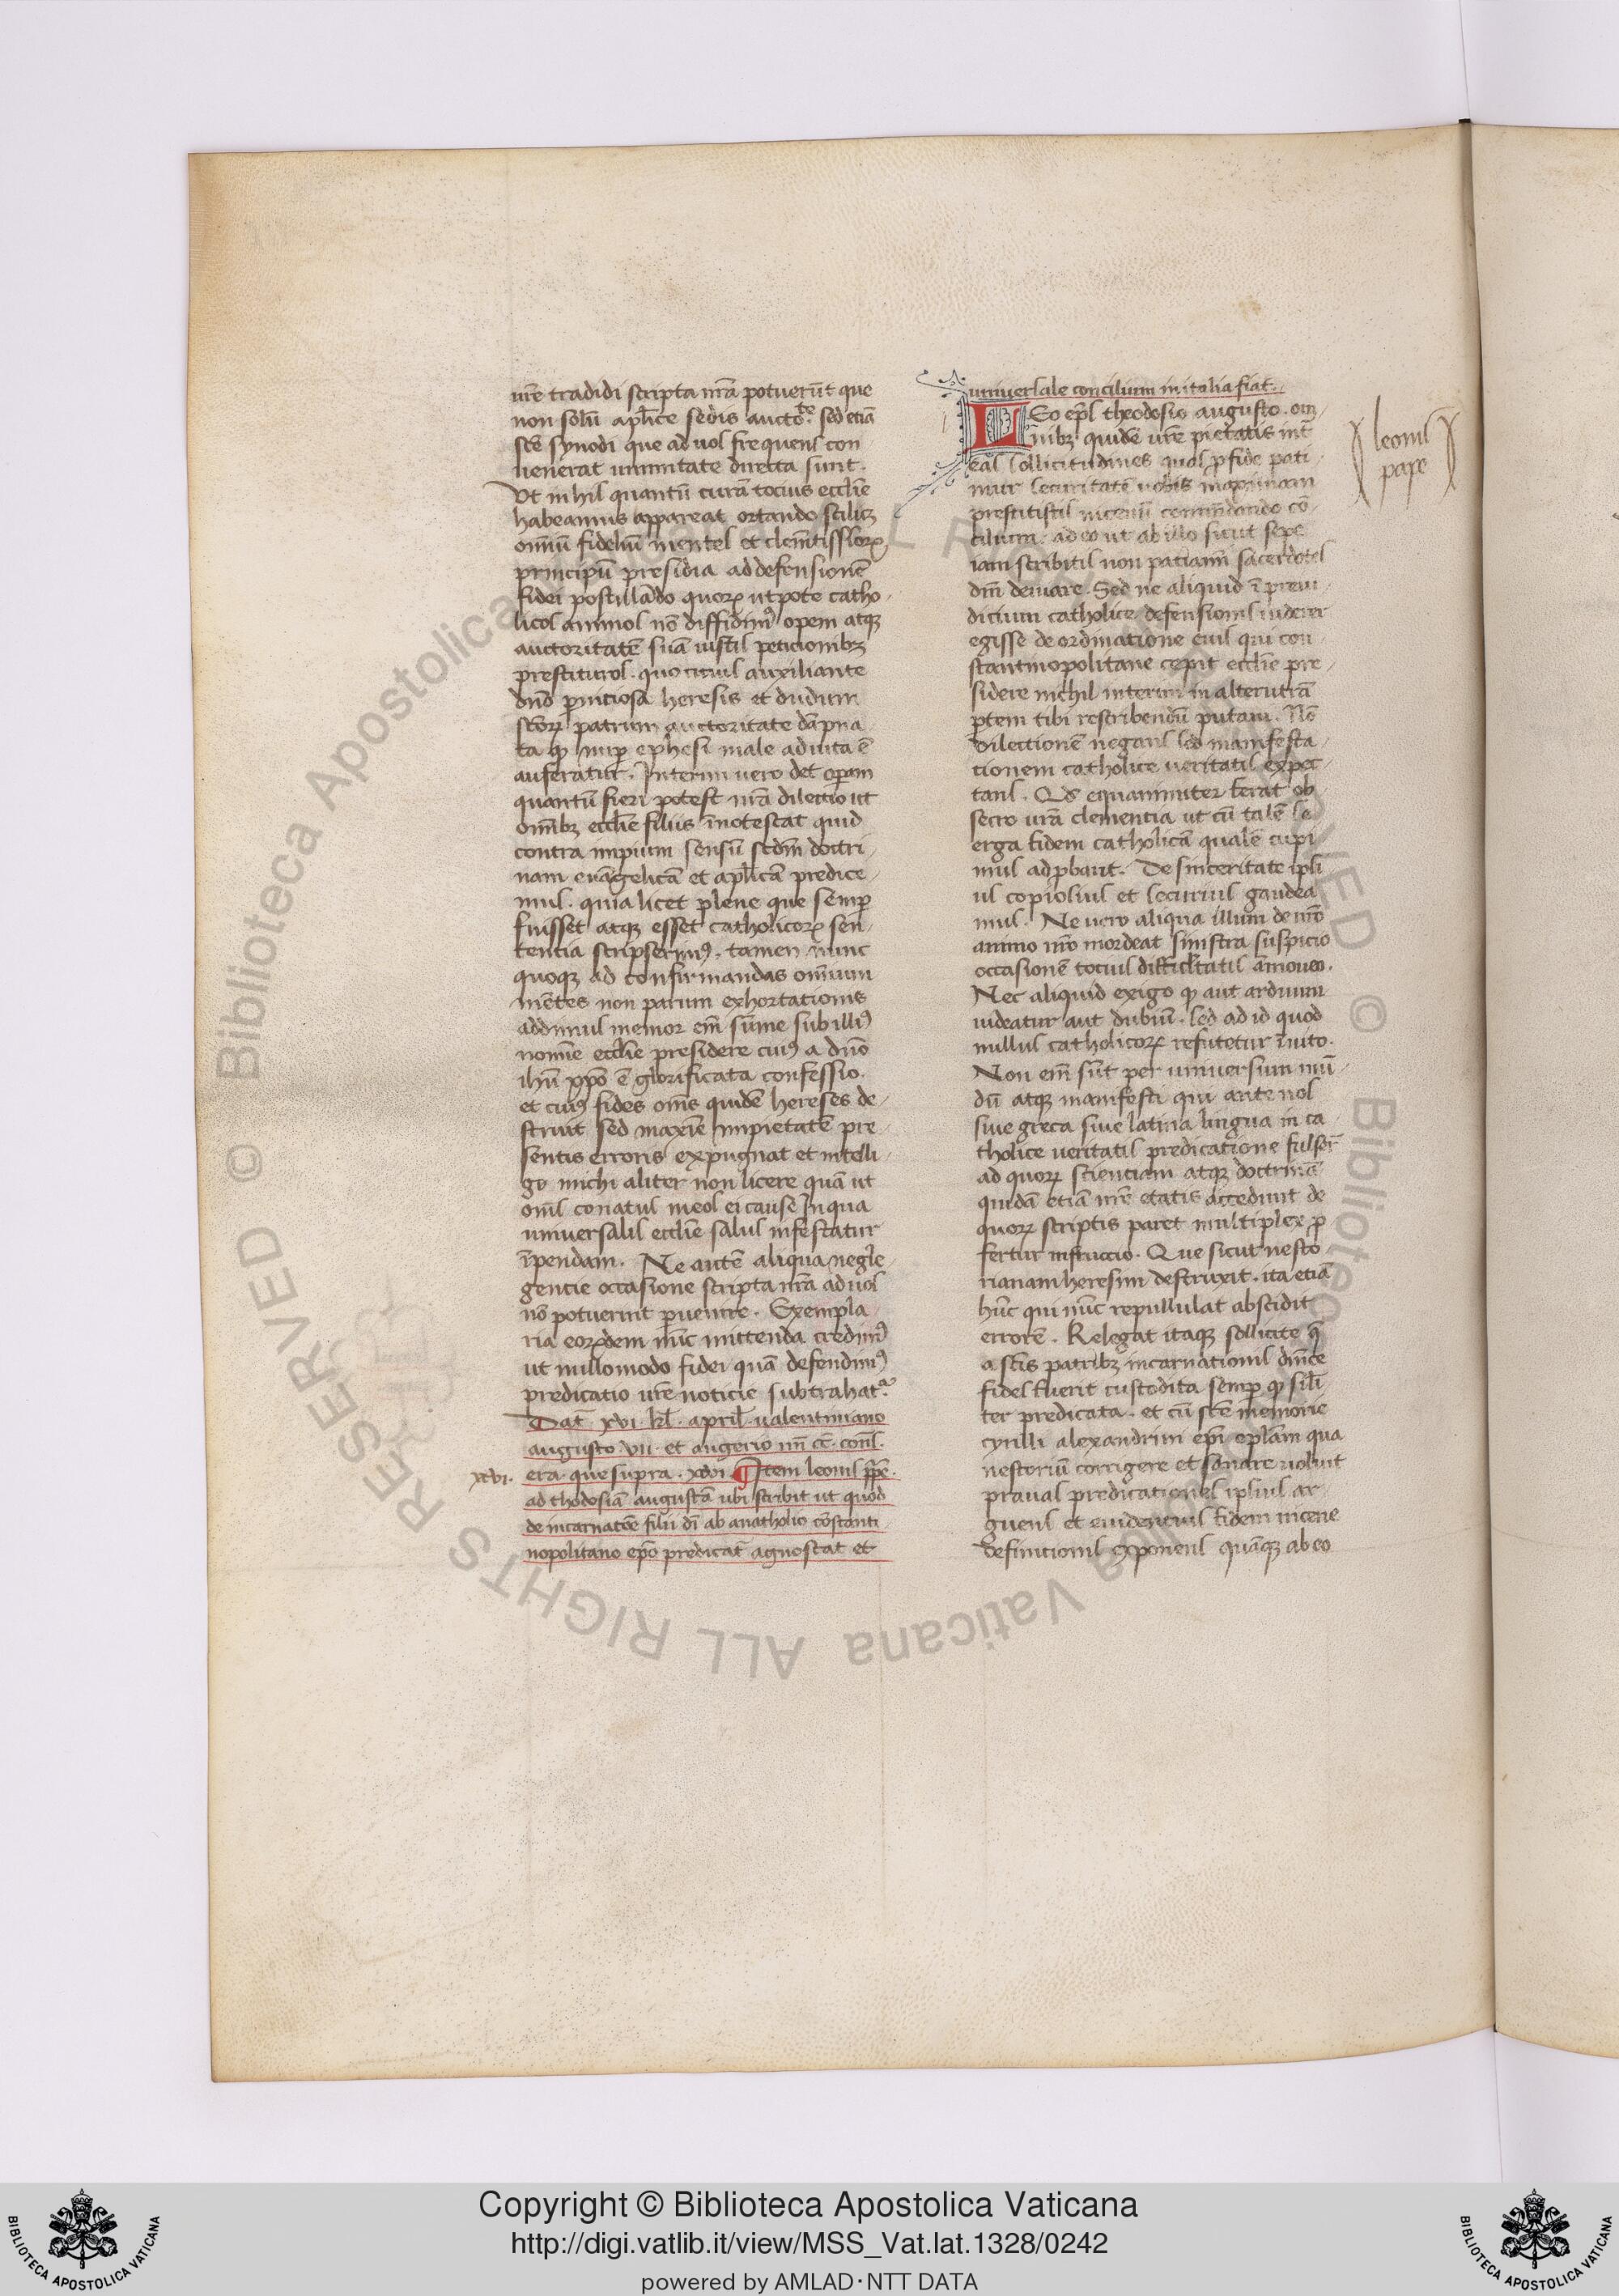 ur̄e tradidi scripta nr̄a potuer̄unt que
non solū apl̄ice sedis aucto.te sed etiā
sc̄e synodi que ad uos frequens con
uenerat unanimitate directa sunt.
Vt in hil quantū curā tocius eccl̄ie
habeamus appareat ortando scilicꝫ
om̄iū fidelium mentes et clem̄tissimoꝝ
principū presidia ad defensionē
fidei postulādo quoꝝ utpote catho
licos animos nō diffidimꝰ opem atqꝫ
auctoritatē suā iustis peticionibꝫ
prestituros. quo cicius auxiliante
dn̄o perniciosa heresis et dudum
sc̄oꝝ patrum auctoritate dāpna
ta qꝫ nuper ephesi male adiuta ē
auferatur. Interim uero det operam
quantū fieri potest nr̄a dilectio ut
om̄ibꝫ eccl̄ie filiis īnotescat quid
contra impium sensū scdm̄ doctri
nam euāgelicā et apl̄icā predice
mus. quia licet plene que semper
fuisset atqꝫ esset catholicoꝝ sen
tencia scripserimꝰ. tamen nunc
quoqꝫ ad confirmandas omnium
mētes non parum exhortationis
addimus memor em̄ sum̄e sub illiꝰ
nomīe eccl̄ie presidere cuiꝰ a dn̄o
ihū xp̄o ē glorificata confessio.
et cuiꝰ fides om̄s quidē hereses de
struit sed maxīe impietatē pre
sentis erroris expugnat et intelli
go michi aliter non licere quā ut
om̄s conatus meos ei cause in qua
uniuersalis eccl̄ie salus infestatur
īpendam. Ne autē aliqua negle
gencie occasione scripta nr̄a ad uos
nō potuerint peruenire. Exempla
ria eoꝝdem nūc mittenda credimꝰ
ut nullo modo fidei quā defendimꝰ
predicatio ur̄e noticie subtrahat.
Dat̄ xvi. kl̄. april̄. ualentiniano
augusto vii. et augerio
era que supra. xxvi. Item leonis pp̄e.
xxvi.
ad thodosiā augustā ubi scribit ut quod
de incarnatōe filii dī ab anatholio cōstanti
nopolitano ep̄o predicat̄ agnoscat et
uniuersale concilium in italia fiat.
LEo ep̄s theodosio augusto. om
nibꝫ quidē ur̄e pietatis int̄
eas sollicitudines quas ꝓ fide pati
mur securitatē nobis maximam
prestitistis nicenū cōmēdando cō
cilium. adeo ut ab illo sicut sepe
iam scribitis non patiamī sacerdotes
dm̄ deuiare. Sed ne aliquid ī preiu
dicium catholice defensionis uiderer
egisse de ordinatione eius qui con
stantinopolitane cepit eccl̄ie pre
sidere nichil interim in alterutrā
ꝑtem tibi rescribendū putaui. Nō
dilectionē negans sed manifesta
tionem catholice ueritatis expec
tans. Qd̄ equanimiter ferat ob
secro ur̄a clementia ut cū talē se
erga fidem catholicā qualē cupi
mus adꝓbauit. De sinceritate ipsi
us copiosius et securius gaudea
mus. Ne uero aliqua illum de nr̄o
animo nr̄o mordeat sinistra suspicio
occasionē tocius difficl̄tatis āmoueo.
Nec aliquid exigo qꝫ aut arduum
uideatur aut dubiū. sed ad id quod
nullus catholicoꝝ refutetur inuito.
Non em̄ sūt per uniuersum mū
dū atqꝫ manifesti qui ante nos
siue greca siue latina lingua in ca
tholice ueritatis predicatione fulser̄
ad quoꝝ scienciam atqꝫ doctrinā
quidā etiā nr̄e etatis accedunt de
quoꝝ scriptis paret multiplex ꝓ
fertur instruccio. Que sicut nesto
rianam heresim destruxit. ita etiā
hūc qui nūc repullulat abscidit
errorē. Relegat itaqꝫ sollicite q̄
a sc̄is patribꝫ incarnationis dn̄ice
fides fuerit custodita semper qꝫ sil̄i
ter predicata. et cū sc̄e memorie
cyrilli alexandrini ep̄i epl̄am qua
nestoriū corrigere et sanare uoluit
prauas predicationes ipsius ar
guens et euidencius fidem nicene
definicionis exponens quāqꝫ ab eo
leonis
pape
Copyright © Biblioteca Apostolica Vaticana
http://digi.vatlib.it/view/MSS_Vat.lat.1328/0242
powered by AMLAD·NTT DATA